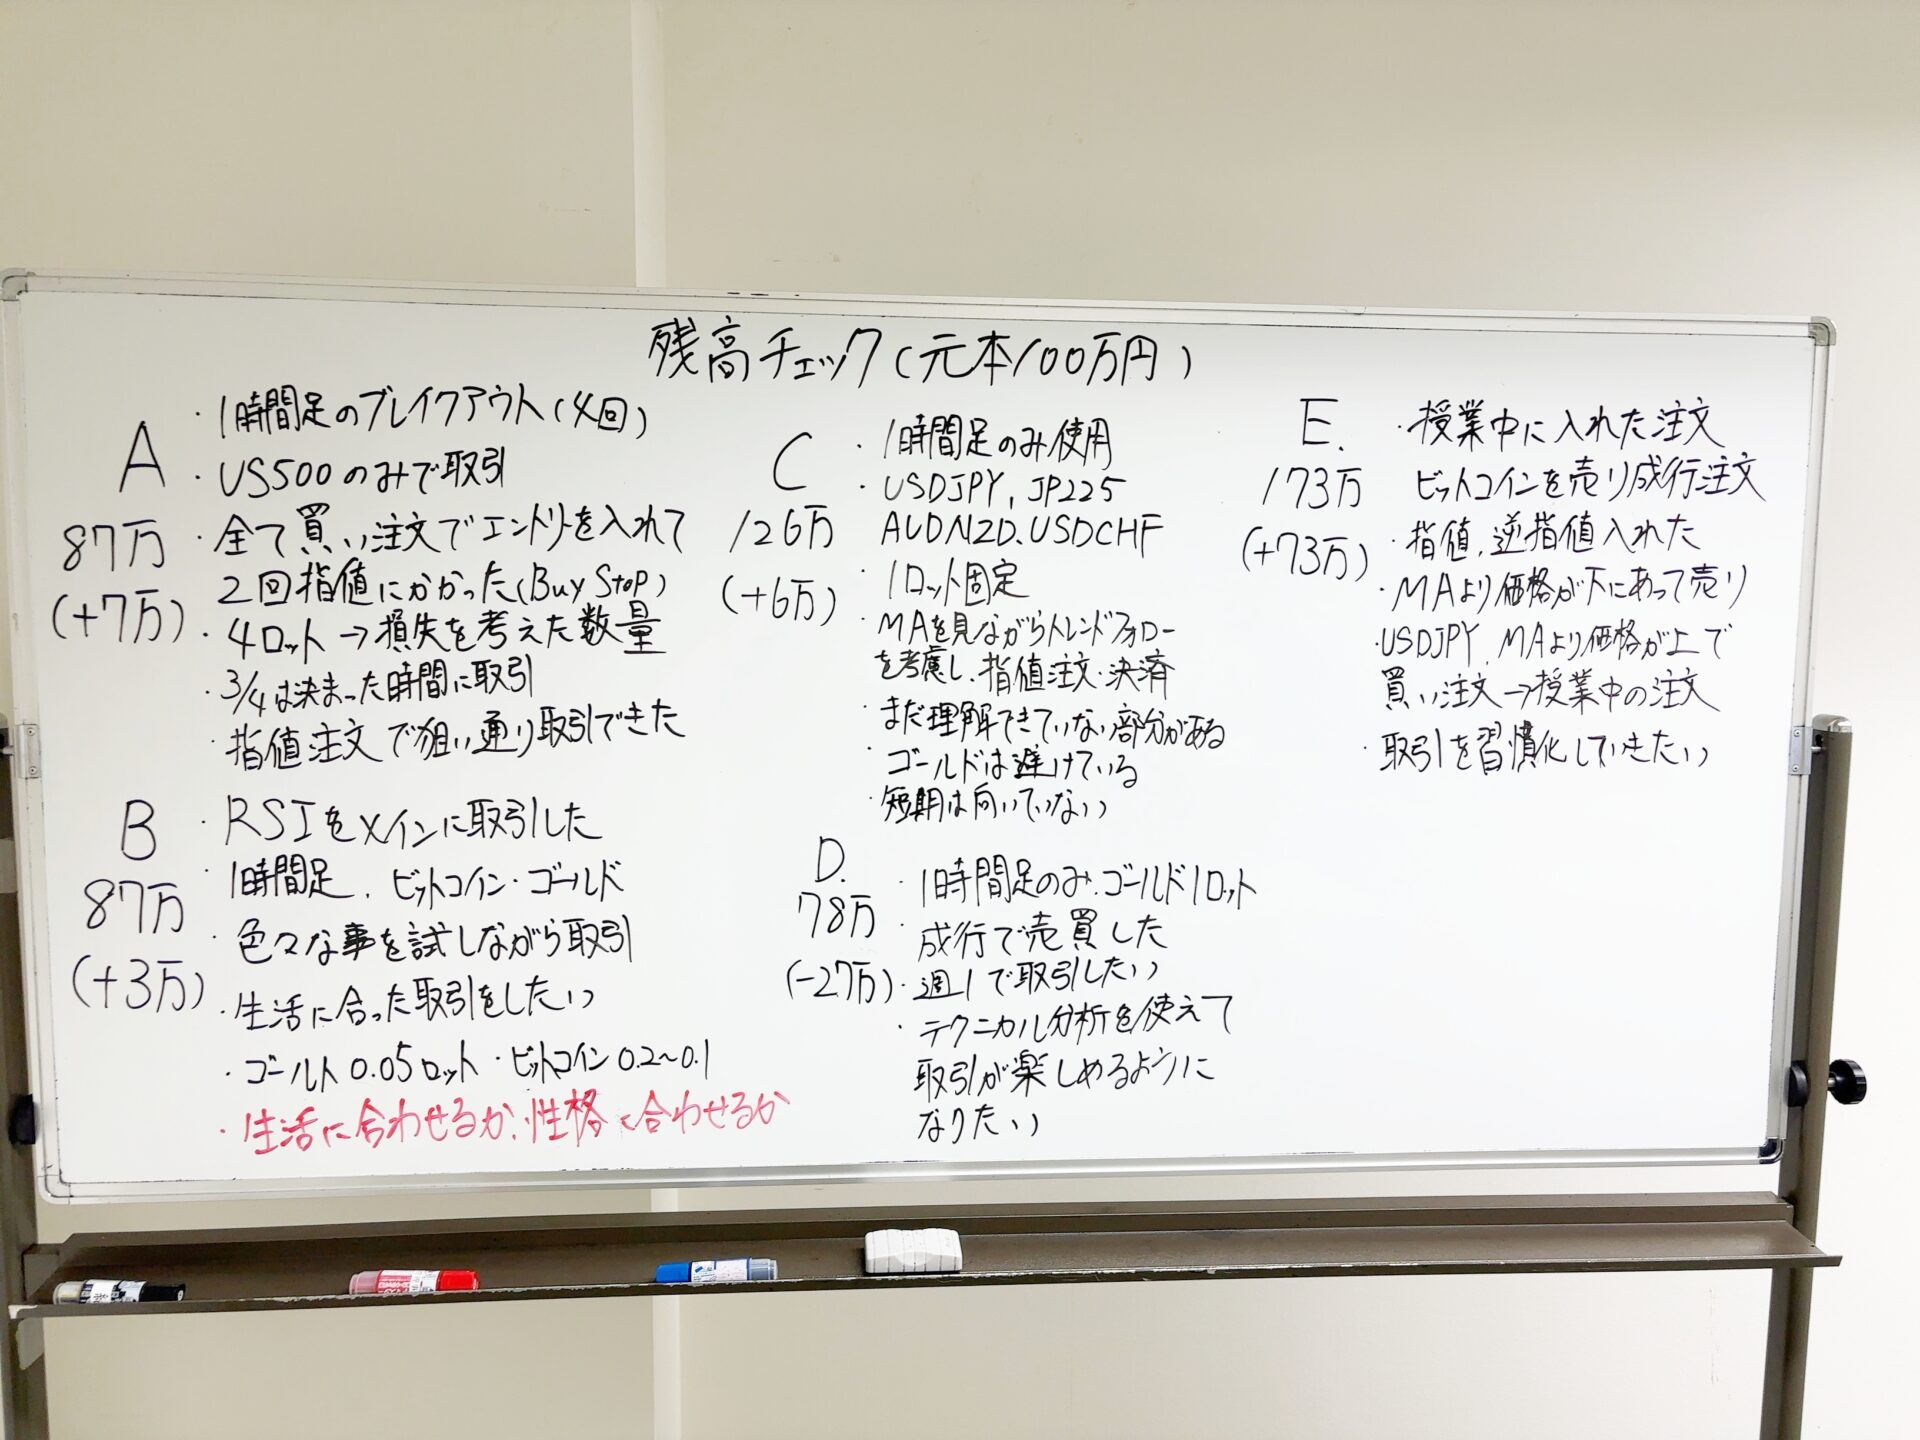 残高チェック(元本100万円)
A
87万
(+7万)
・1時間足のブレイクアウト(4回)
・US500のみで取引
・全て買い注文でエントリーを入れて
2回指値にかかった(Buy Stop)
・4ロット→損失を考えた数量
・3/4は決まった時間に取引
・指値注文で狙い通り取引できた
B
87万
(+3万)
・RSIをメインに取引した
・1時間足、ビットコイン・ゴールド
・色々な事を試しながら取引
・生活に合った取引をしたい
・ゴールド0.05ロット・ビットコイン0.2~0.1
・生活に合わせるか、性格に合わせるか
C
126万
(+6万)
・1時間足のみ使用
・USDJPY, JP225
AUDNZD、USDCHF
・1ロット固定
・MAを見ながらトレンドフォロー
を考慮し、指値注文・決済
・まだ理解できていない部分がある
・ゴールドは避けている
・短期は向いていない
D.
78万
(-27万)
・1時間足のみ、ゴールド1ロット
・成行で売買した
・週1で取引したい
・テクニカル分析を使えて
取引が楽しめるように
なりたい
E.
173万
(+73万)
・授業中に入れた注文
ビットコインを売り成行注文
・指値、逆指値入れた
・MAより価格が下にあって売り
・USDJPY、MAより価格が上で
買い注文→授業中の注文
・取引を習慣化していきたい